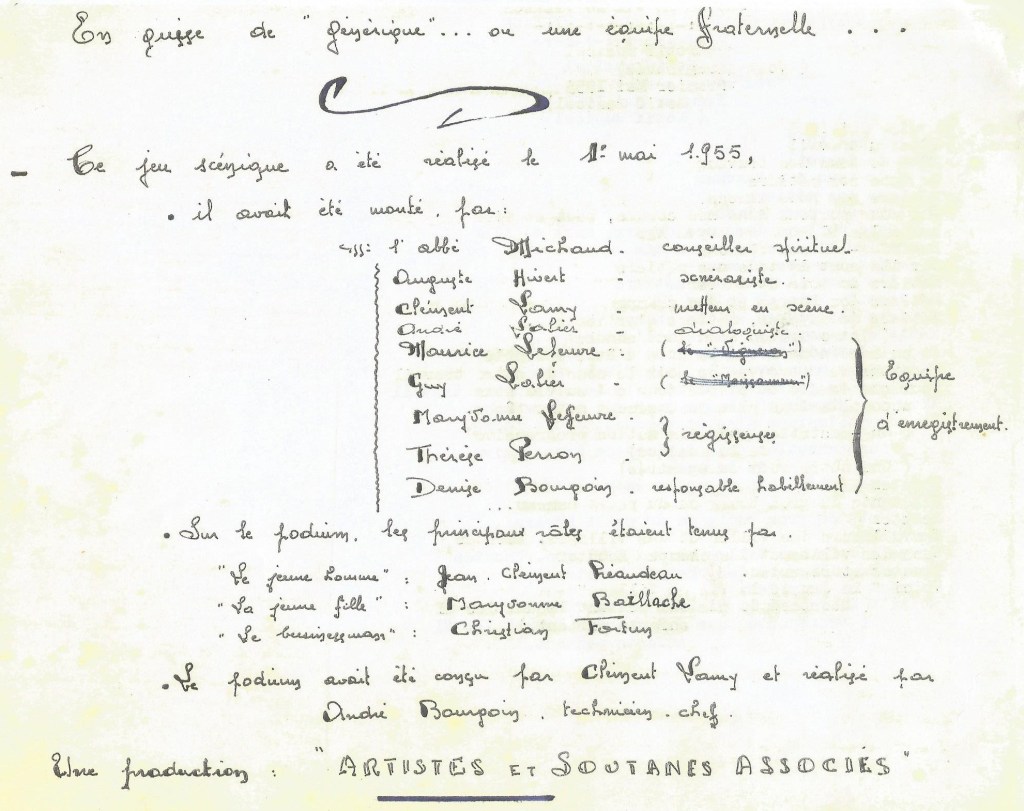 En guise de "générique"... ou une équipe fraternelle ...
- Ce jeu scénique a été réalisé le 1er mai 1.955,
• il avait été monté, par:
l'abbé Michaud - conseiller spirituel -
Auguste Hivert - scénariste.
Clément Lamy - metteur en scène.
André Salier - dialoguiste.
Maurice Lefeuvre - (le "Vigneron")
Guy Salier - (le "Moissonneur")
Maryvonne Lefeuvre -
} régisseuses
Thérèse Perron -
Denise Bourgoin - responsable habillement
...
Equipe
d'enregistrement.
• Sur le podium, les principaux rôles étaient tenus par.
"Le jeune homme" : Jean-Clément Réaudeau
"La jeune fille" : Maryvonne Baillache
"Le businessman" : Christian Fortun
• Le podium avait été conçu par Clément Lamy et réalisé par
André Bourgoin, technicien-chef.
Une production : "ARTISTES ET SOUTANES ASSOCIÉS"